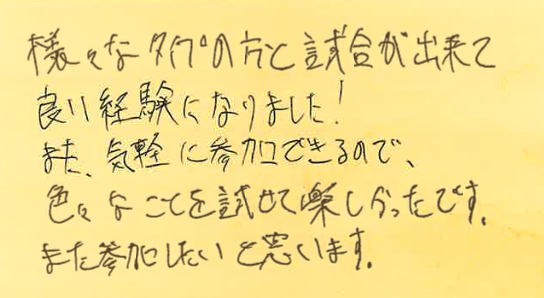 様々なタイプの方と試合が出来て
良い経験になりました!
また、気軽に参加できるので、
色々なことを試せて楽しかったです。
また参加したいと思います。